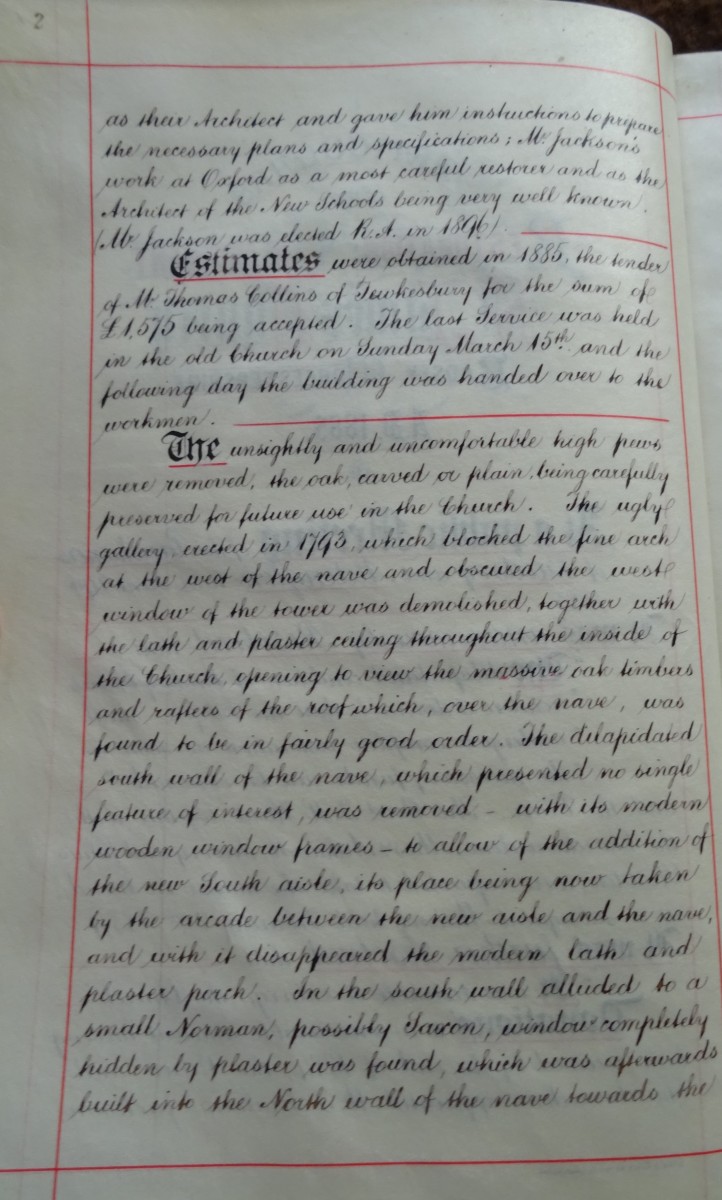 2
as their Architect and gave him instructions to prepare
the necessary plans and specifications; Mr. Jackson's
work at Oxford as a most careful restorer and as the
Architect of the New Schools being very well known.
(Mr. Jackson was elected R.A. in 1896).
Estimates were obtained in 1885, the tender
of Mr. Thomas Collins of Tewkesbury for the sum of
£1,575 being accepted. The last Service was held
in the old Church on Sunday March 15th. and the
following day the building was handed over to the
workmen.
The unsightly and uncomfortable high pews
were removed, the oak, carved or plain, being carefully
preserved for future use in the Church. The ugly
gallery, erected in 1793, which blocked the fine arch
at the west of the nave and obscured the west
window of the tower was demolished, together with
the lath and plaster ceiling throughout the inside of
the Church, opening to view the massive oak timbers
and rafters of the roof which, over the nave, was
found to be in fairly good order. The dilapidated
south wall of the nave, which presented no single
feature of interest, was removed - with its modern
wooden window frames - to allow of the addition of
the new South aisle, its place being now taken
by the arcade between the new aisle and the nave,
and with it disappeared the modern lath and
plaster porch. In the south wall alluded to a
small Norman, possibly Saxon, window completely
hidden by plaster was found, which was afterwards
built into the North wall of the nave towards the